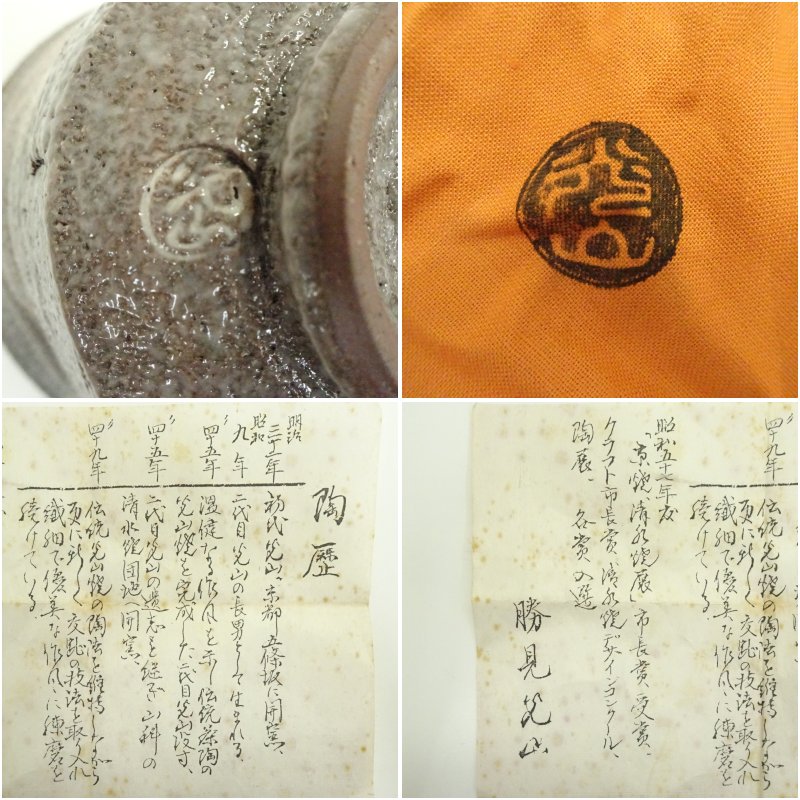 陶歴
明治
初代光山、京都五條坂に開窯、
昭和
九年
二代目光山の長男として生まれる、
〃
四十五年
温健なる作風を示し伝統茶陶の
光山焼を完成した二代目光山没す、
〃
四十五年
二代目光山の遺志を継ぎ山科の
清水焼団地へ開窯、
〃
四十九年
伝統光山焼の陶法を維持しながら
更に新しく交趾の技法を取り入れ
繊細で優美な作風に練磨を
続けている
〃
四十九年
伝統光山焼の陶法を維持しながら
更に新しく交趾の技法を取り入れ
繊細で優美な作風に練磨を
続けている
昭和五十七年度
「京焼、清水焼展」市長賞受賞、
クラフト市長賞、清水焼デザインコンクール、
陶展、各賞、入選
勝見光山